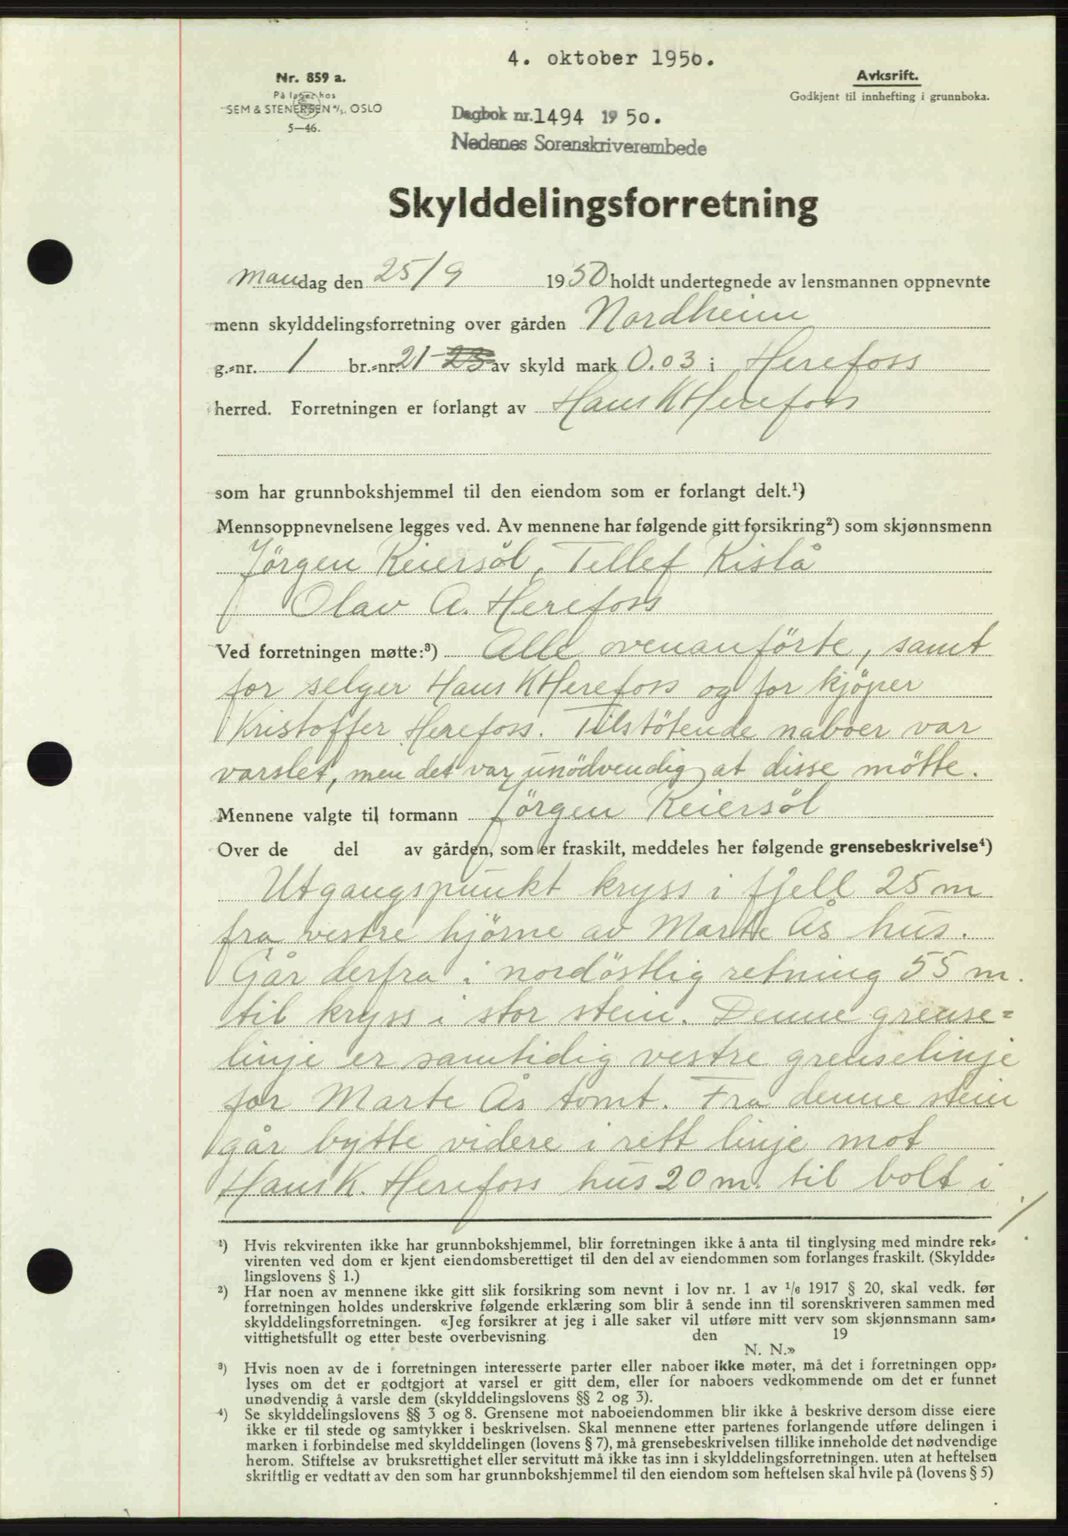 4. oktober 1950.
Nr. 859 a.
På lager hos
SEM & STENERSEN A/S. OSLO
5—46.
Avksrift.
Godkjent til innhefting i grunnboka.
Dagbok nr. 1494 1950.
Nedenes Sorenskriverembede
Skylddelingsforretning
Mandag den 25/9 1950 holdt undertegnede av lensmannen oppnevnte
menn skylddelingsforretning over gården Nordheim
g.-nr. 1 br.-nr. 21 23 av skyld mark 0.03 i Herefoss
herred. Forretningen er forlangt av Hans K Herefoss
som har grunnbokshjemmel til den eiendom som er forlangt delt.¹)
Mennsoppnevnelsene legges ved. Av mennene har følgende gitt forsikring²) som skjønnsmenn
Jörgen Reiersöl, Tellef Rislå
Olav A. Herefoss
Ved forretningen møtte:³) Alle ovenanförte, samt
for selger Hans K Herefoss og for kjöper
Kristoffer Herefoss. Tilstötende naboer var
varslet, men det var unödvendig at disse mötte.
Mennene valgte til formann Jörgen Reiersöl
Over de del av gården, som er fraskilt, meddeles her følgende grensebeskrivelse⁴)
Utgangspunkt kryss i fjell 25 m
fra vestre hjörne av Marte Ås hus.
Går derfra i nordöstlig retning 55 m.
til kryss i stor stein. Denne grense=
linje er samtidig vestre grenselinje
for Marte Ås tomt. Fra denne stein
går bytte videre i rett linje mot
Hans K. Herefoss hus 20 m. til bolt i
./.
¹) Hvis rekvirenten ikke har grunnbokshjemmel, blir forretningen ikke å anta til tinglysing med mindre rek-
virenten ved dom er kjent eiendomsberettiget til den del av eiendommen som forlanges fraskilt. (Skyldde-
lingslovens § 1.)
²) Har noen av mennene ikke gitt slik forsikring som nevnt i lov nr. 1 av 1/6 1917 § 20, skal vedk. før
forretningen holdes underskrive følgende erklæring som blir å sende inn til sorenskriveren sammen med
skylddelingsforretningen. «Jeg forsikrer at jeg i alle saker vil utføre mitt verv som skjønnsmann sam-
vittighetsfullt og etter beste overbevisning den 19
N. N.»
³) Hvis noen av de i forretningen interesserte parter eller naboer ikke møter, må det i forretningen opp-
lyses om det er godtgjort at varsel er gitt dem, eller for naboers vedkommende om det er funnet
unødvendig å varsle dem (skylddelingslovens §§ 2 og 3).
⁴) Se skylddelingslovens §§ 3 og 8. Grensene mot naboeiendommen blir ikke å beskrive dersom disse eiere
ikke er til stede og samtykker i beskrivelsen. Skal mennene etter partenes forlangende utføre delingen i
marken i forbindelse med skylddelingen (lovens § 7), må grensebeskrivelsen tillike inneholde det nødvendige
herom. Stiftelse av bruksrettighet eller servitutt må ikke tas inn i skylddelingsforretningen. uten at heftelsen
skriftlig er vedtatt av den som har grunnbokshjemmel til den eiendom som heftelsen skal hvile på (lovens § 5)